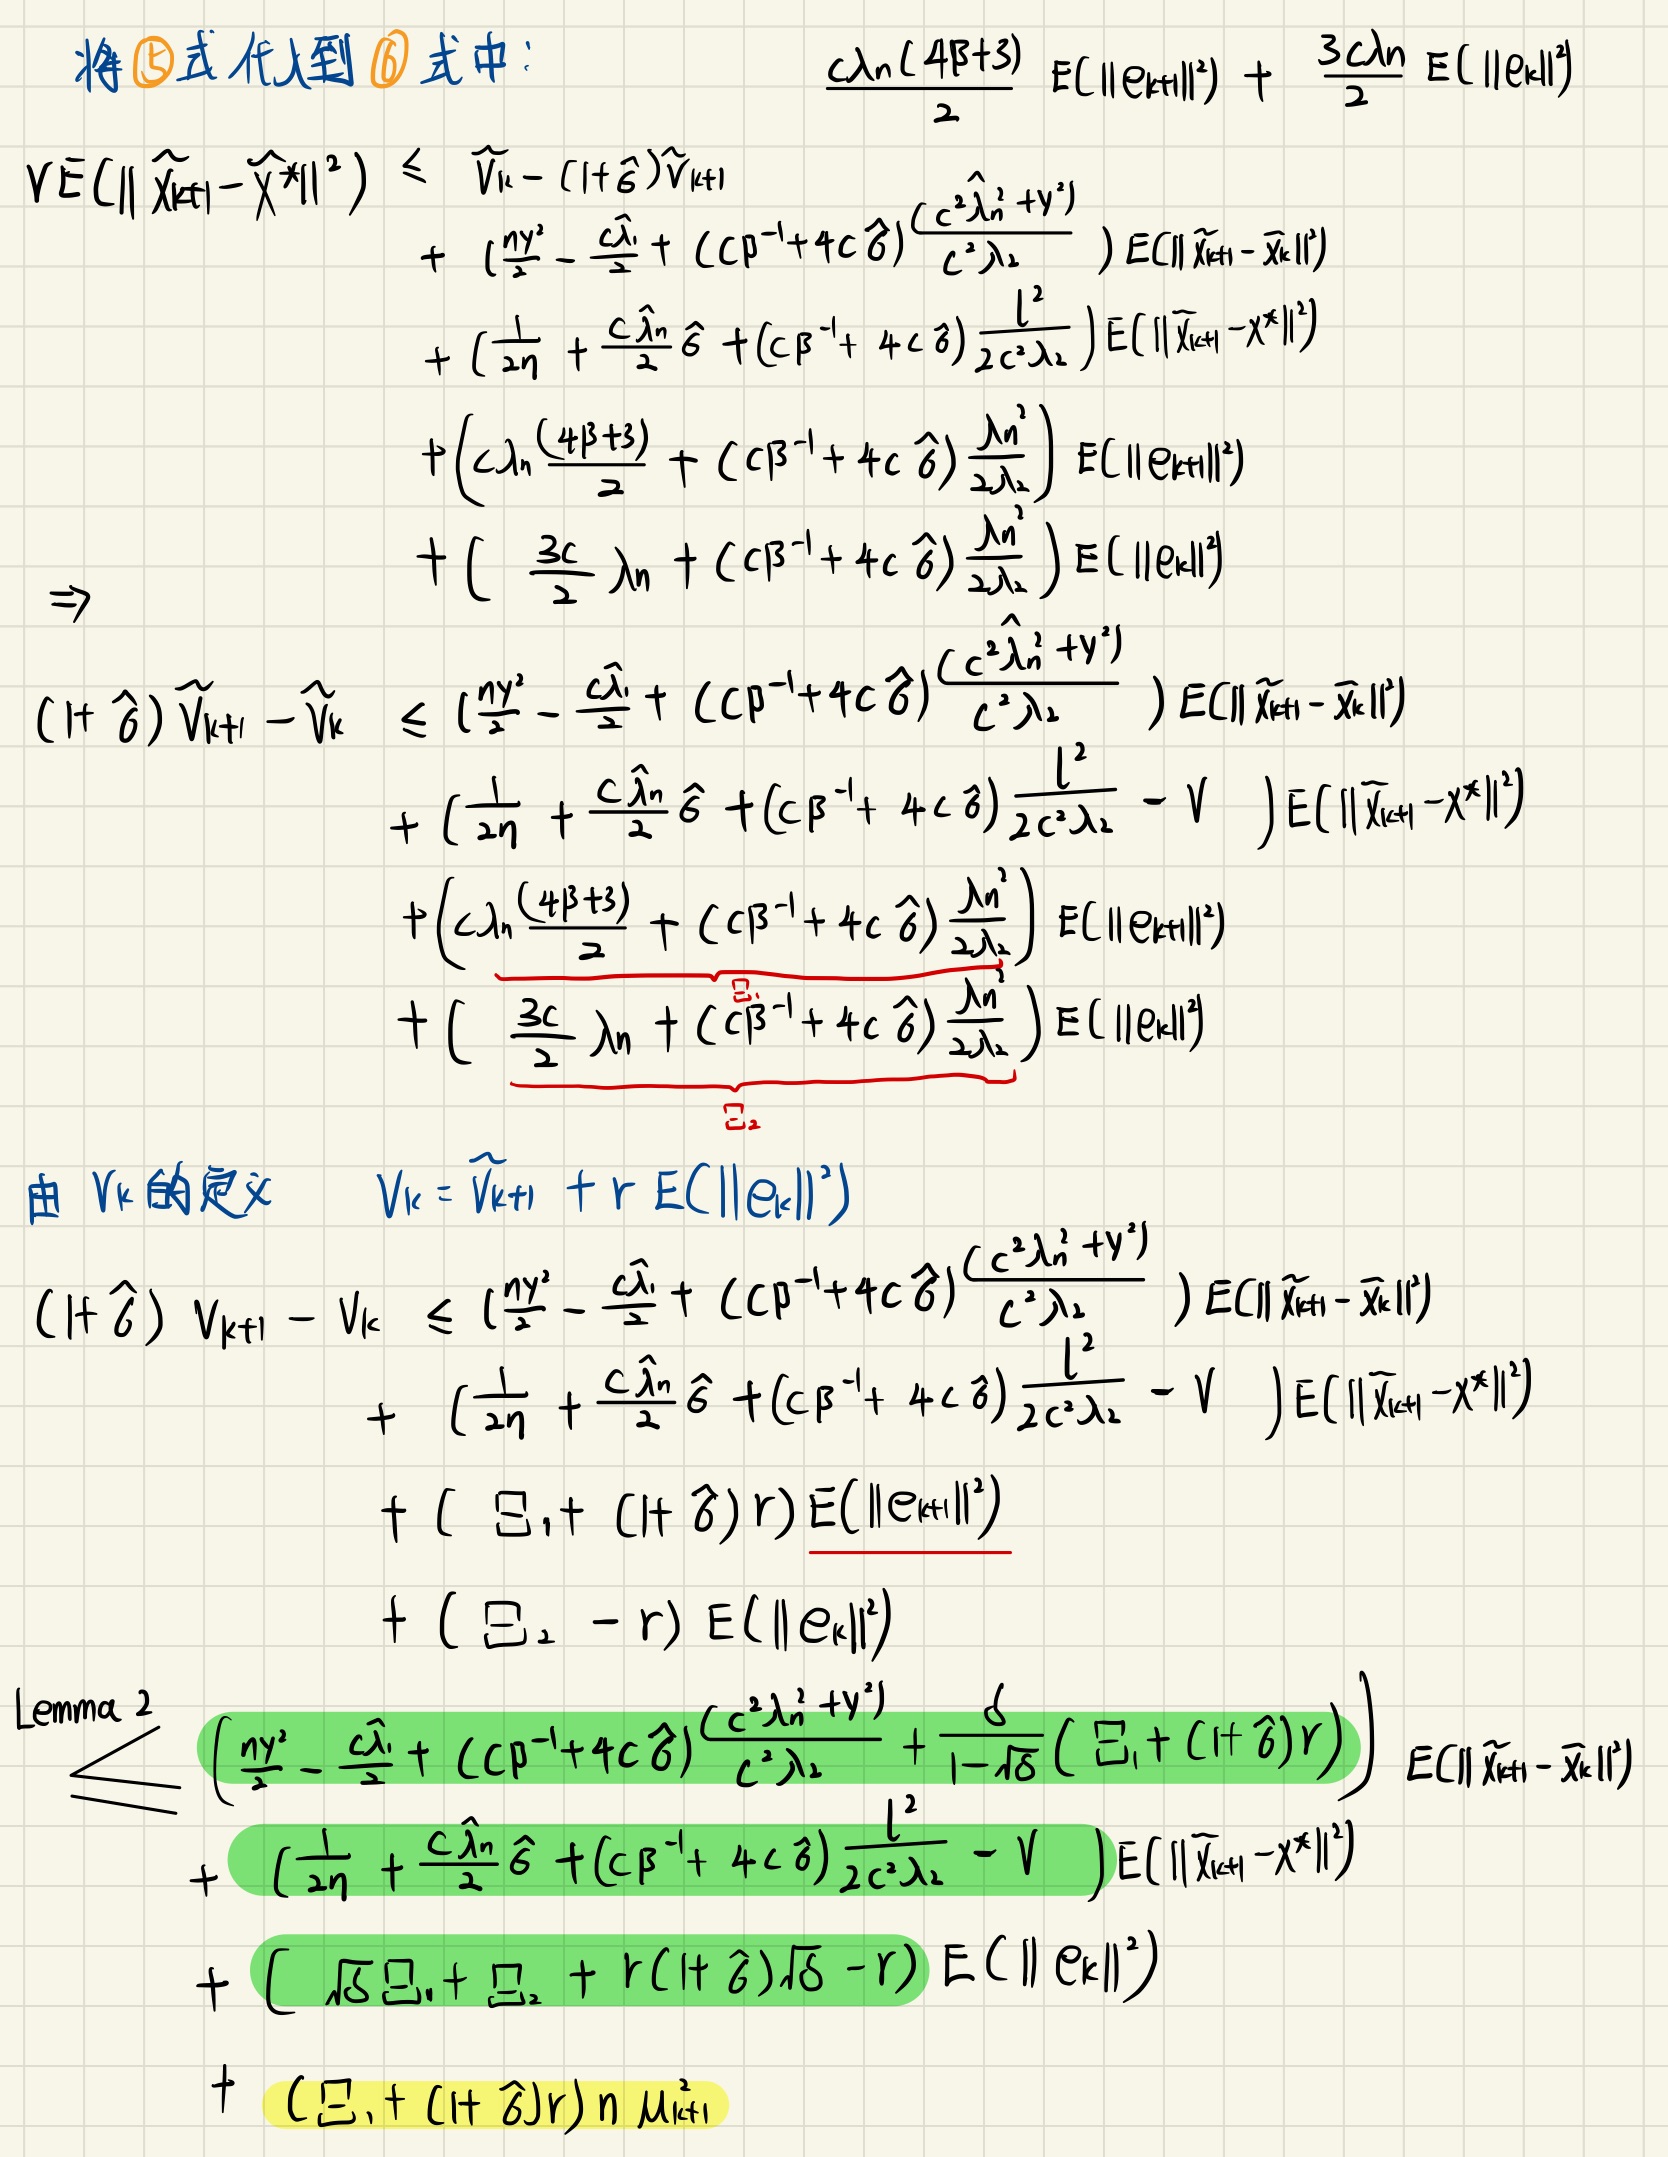 将⑤式代入到⑥式中: cλn(4β+3)/2 E(||ek+1||²) + 3cλn/2 E(||ek||²)
νE(||x̃k+1 - x̂*||²) ≤ Ṽk - (1+σ̂)Ṽk+1
+ (ηγ²/2 - cλ̂1/2 + (cβ⁻¹+4cσ̂)(c²λ̂n²+γ²)/c²λ2) E(||x̃k+1 - x̃k||²)
+ (1/2η + cλ̂n/2 σ̂ + (cβ⁻¹+ 4cσ̂) l²/2c²λ2) E(||x̃k+1 - x*||²)
+ (cλn(4β+3)/2 + (cβ⁻¹+4cσ̂) λn²/2λ2) E(||ek+1||²)
+ ( 3c/2 λn + (cβ⁻¹+4cσ̂) λn²/2λ2) E(||ek||²)
⇒
(1+σ̂)Ṽk+1 - Ṽk ≤ (ηγ²/2 - cλ̂1/2 + (cβ⁻¹+4cσ̂)(c²λ̂n²+γ²)/c²λ2) E(||x̃k+1 - x̃k||²)
+ (1/2η + cλ̂n/2 σ̂ + (cβ⁻¹+ 4cσ̂) l²/2c²λ2 - ν) E(||x̃k+1 - x*||²)
+ (cλn(4β+3)/2 + (cβ⁻¹+4cσ̂) λn²/2λ2) E(||ek+1||²)
Ξ1
+ ( 3c/2 λn + (cβ⁻¹+4cσ̂) λn²/2λ2) E(||ek||²)
Ξ2
由 Vk 的定义 Vk = Ṽk+1 + r E(||ek||²)
(1+σ̂) Vk+1 - Vk ≤ (ηγ²/2 - cλ̂1/2 + (cβ⁻¹+4cσ̂)(c²λn²+γ²)/c²λ2) E(||x̃k+1 - x̃k||²)
+ (1/2η + cλ̂n/2 σ̂ + (cβ⁻¹+ 4cσ̂) l²/2c²λ2 - ν) E(||x̃k+1 - x*||²)
+ ( Ξ1 + (1+σ̂)r) E(||ek+1||²)
+ ( Ξ2 - r) E(||ek||²)
Lemma 2
≤ (ηγ²/2 - cλ̂1/2 + (cβ⁻¹+4cσ̂)(c²λn²+γ²)/c²λ2 + δ/1-√δ ( Ξ1 + (1+σ̂)r)) E(||x̃k+1 - x̃k||²)
+ (1/2η + cλ̂n/2 σ̂ + (cβ⁻¹+ 4cσ̂) l²/2c²λ2 - ν) E(||x̃k+1 - x*||²)
+ ( √δ Ξ1 + Ξ2 + r(1+σ̂)√δ - r) E(||ek||²)
+ (Ξ1 + (1+σ̂)r) n μ²k+1